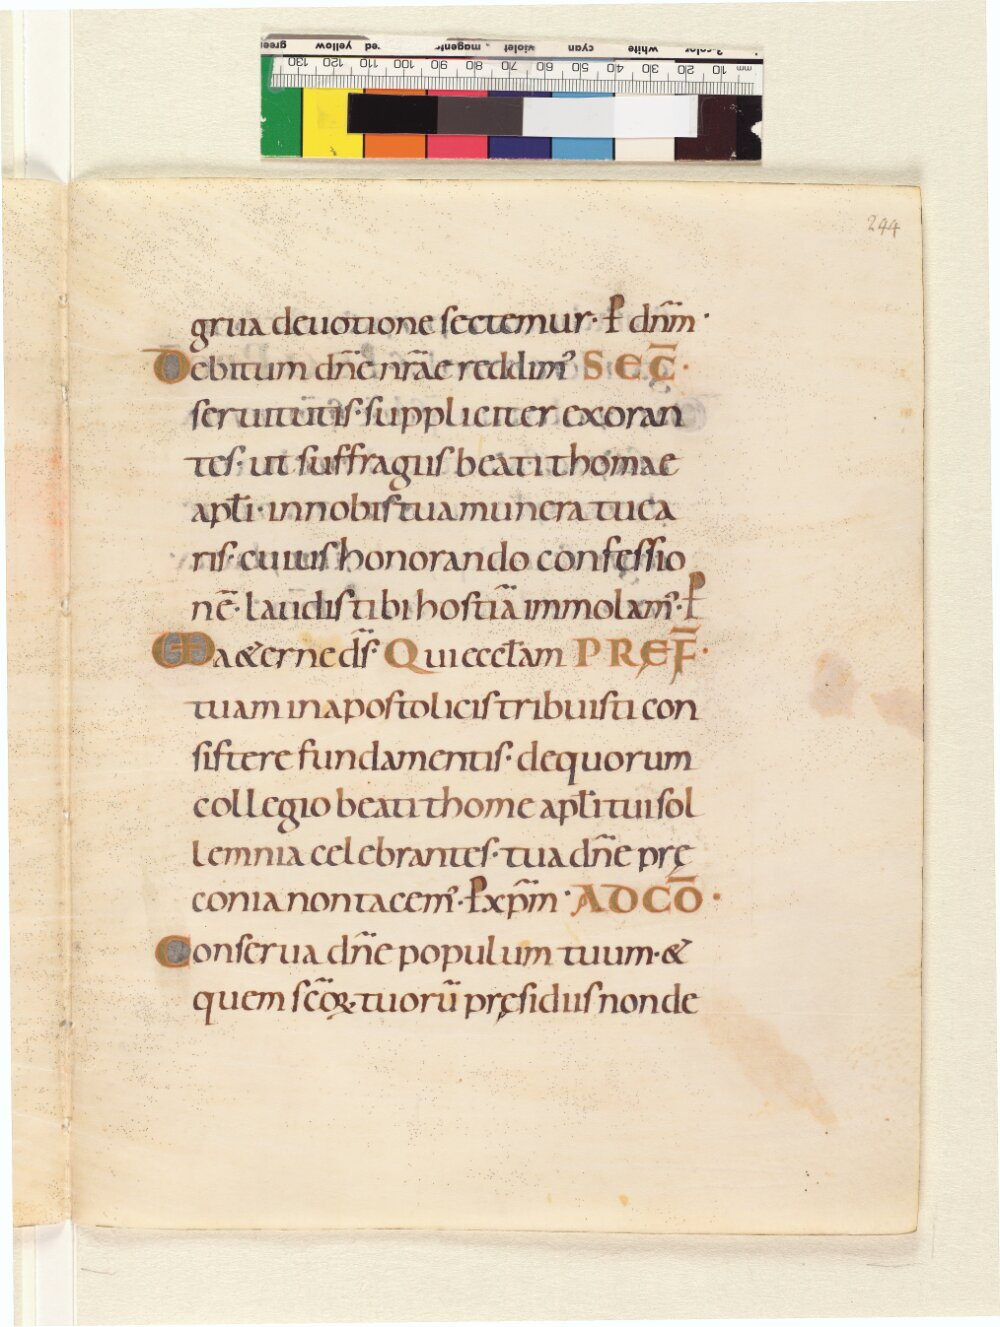 green yellow red magenta violet cyan white 3-color
130 120 110 100 90 80 70 60 50 40 30 20 10 mm
244
grua deuotione sectemur· P dñm·
Debitum dñe nr̄ae reddim᾽ SEC̄·
seruitutis· suppliciter exoran
tes· ut suffragiis beati thomae
apłi· in nobis tua munera tuea
ris· cuius honorando confessio
nē· laudis tibi hostiā immolam᾽· P
MDa &erne dſ̄· Qui eccłam PREF̄·
tuam in apostolicis tribuisti con
sistere fundamentis· de quorum
collegio beati thome apłi tui sol
lemnia celebrantes· tua dñe prę
conia non tacem᾽· P xp̄m· AD CŌ·
Conserua dñe populum tuum· &
quem sc̄oꝝ tuorū pręsidiis non de